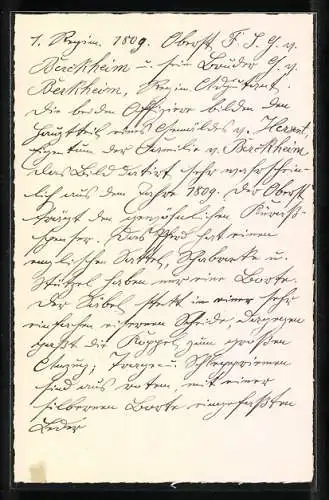 1. Regim. 1809. Oberst F. S. G. v.
Berckheim u. sein Bruder G. v.
Berkheim, Regim. Adjutant.
Die beiden Offiziere bilden den
Hauptteil eines Gemäldes v.
Eigentum der Familie v. Berckheim
Das Bild datirt sehr wahrschein-
lich aus dem Jahre 1809. Der Oberst
trägt den gewöhnlichen Kürass-
spenser. Das Pferd hat einen
englischen Sattel, Shabracke u.
haben nur eine Borte.
Der Säbel steckt in einer sehr
einfachen eisernen Scheide, dagegen
paßt die Koppel zum großen
Anzug; Trage- u. Schleppriemen
sind aus rotem, mit einer
silbernen Borte eingefaßten
Leder